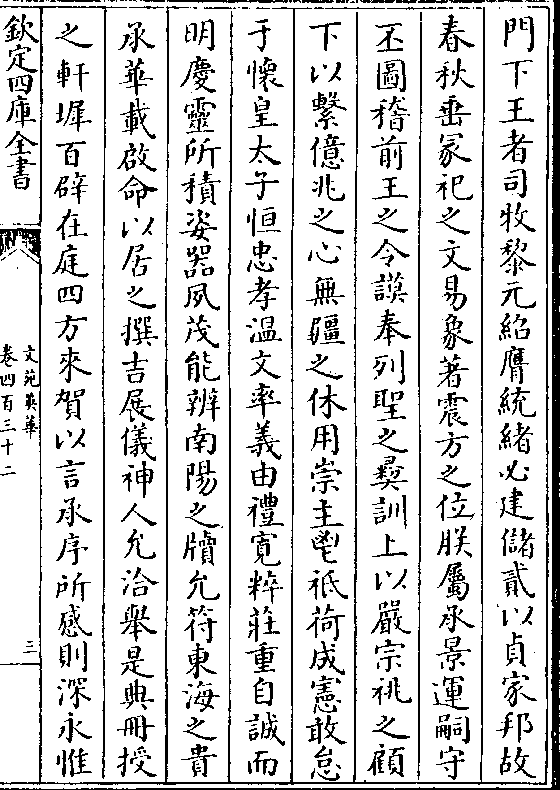 門下王者司牧黎元紹膺統緒必建儲貳以貞家邦故
春秋垂冢祀之文易象著震方之位朕屬承景運嗣守
丕圖稽前王之令謨奉列聖之彞訓上以嚴宗祧之顧
下以繫億兆之心無疆之休用崇主鬯祗荷成憲敢怠
于懷皇太子恒忠孝溫文率義由禮寬粹莊重自誠而
明慶靈所積姿器夙茂能辨南陽之牘允符東海之貴
承華載啟命以居之撰吉展儀神人允洽舉是典冊授
之軒墀百辟在庭四方來賀以言承序所感則深永惟
欽定四庫全書
文苑英華
卷四百三十二
三